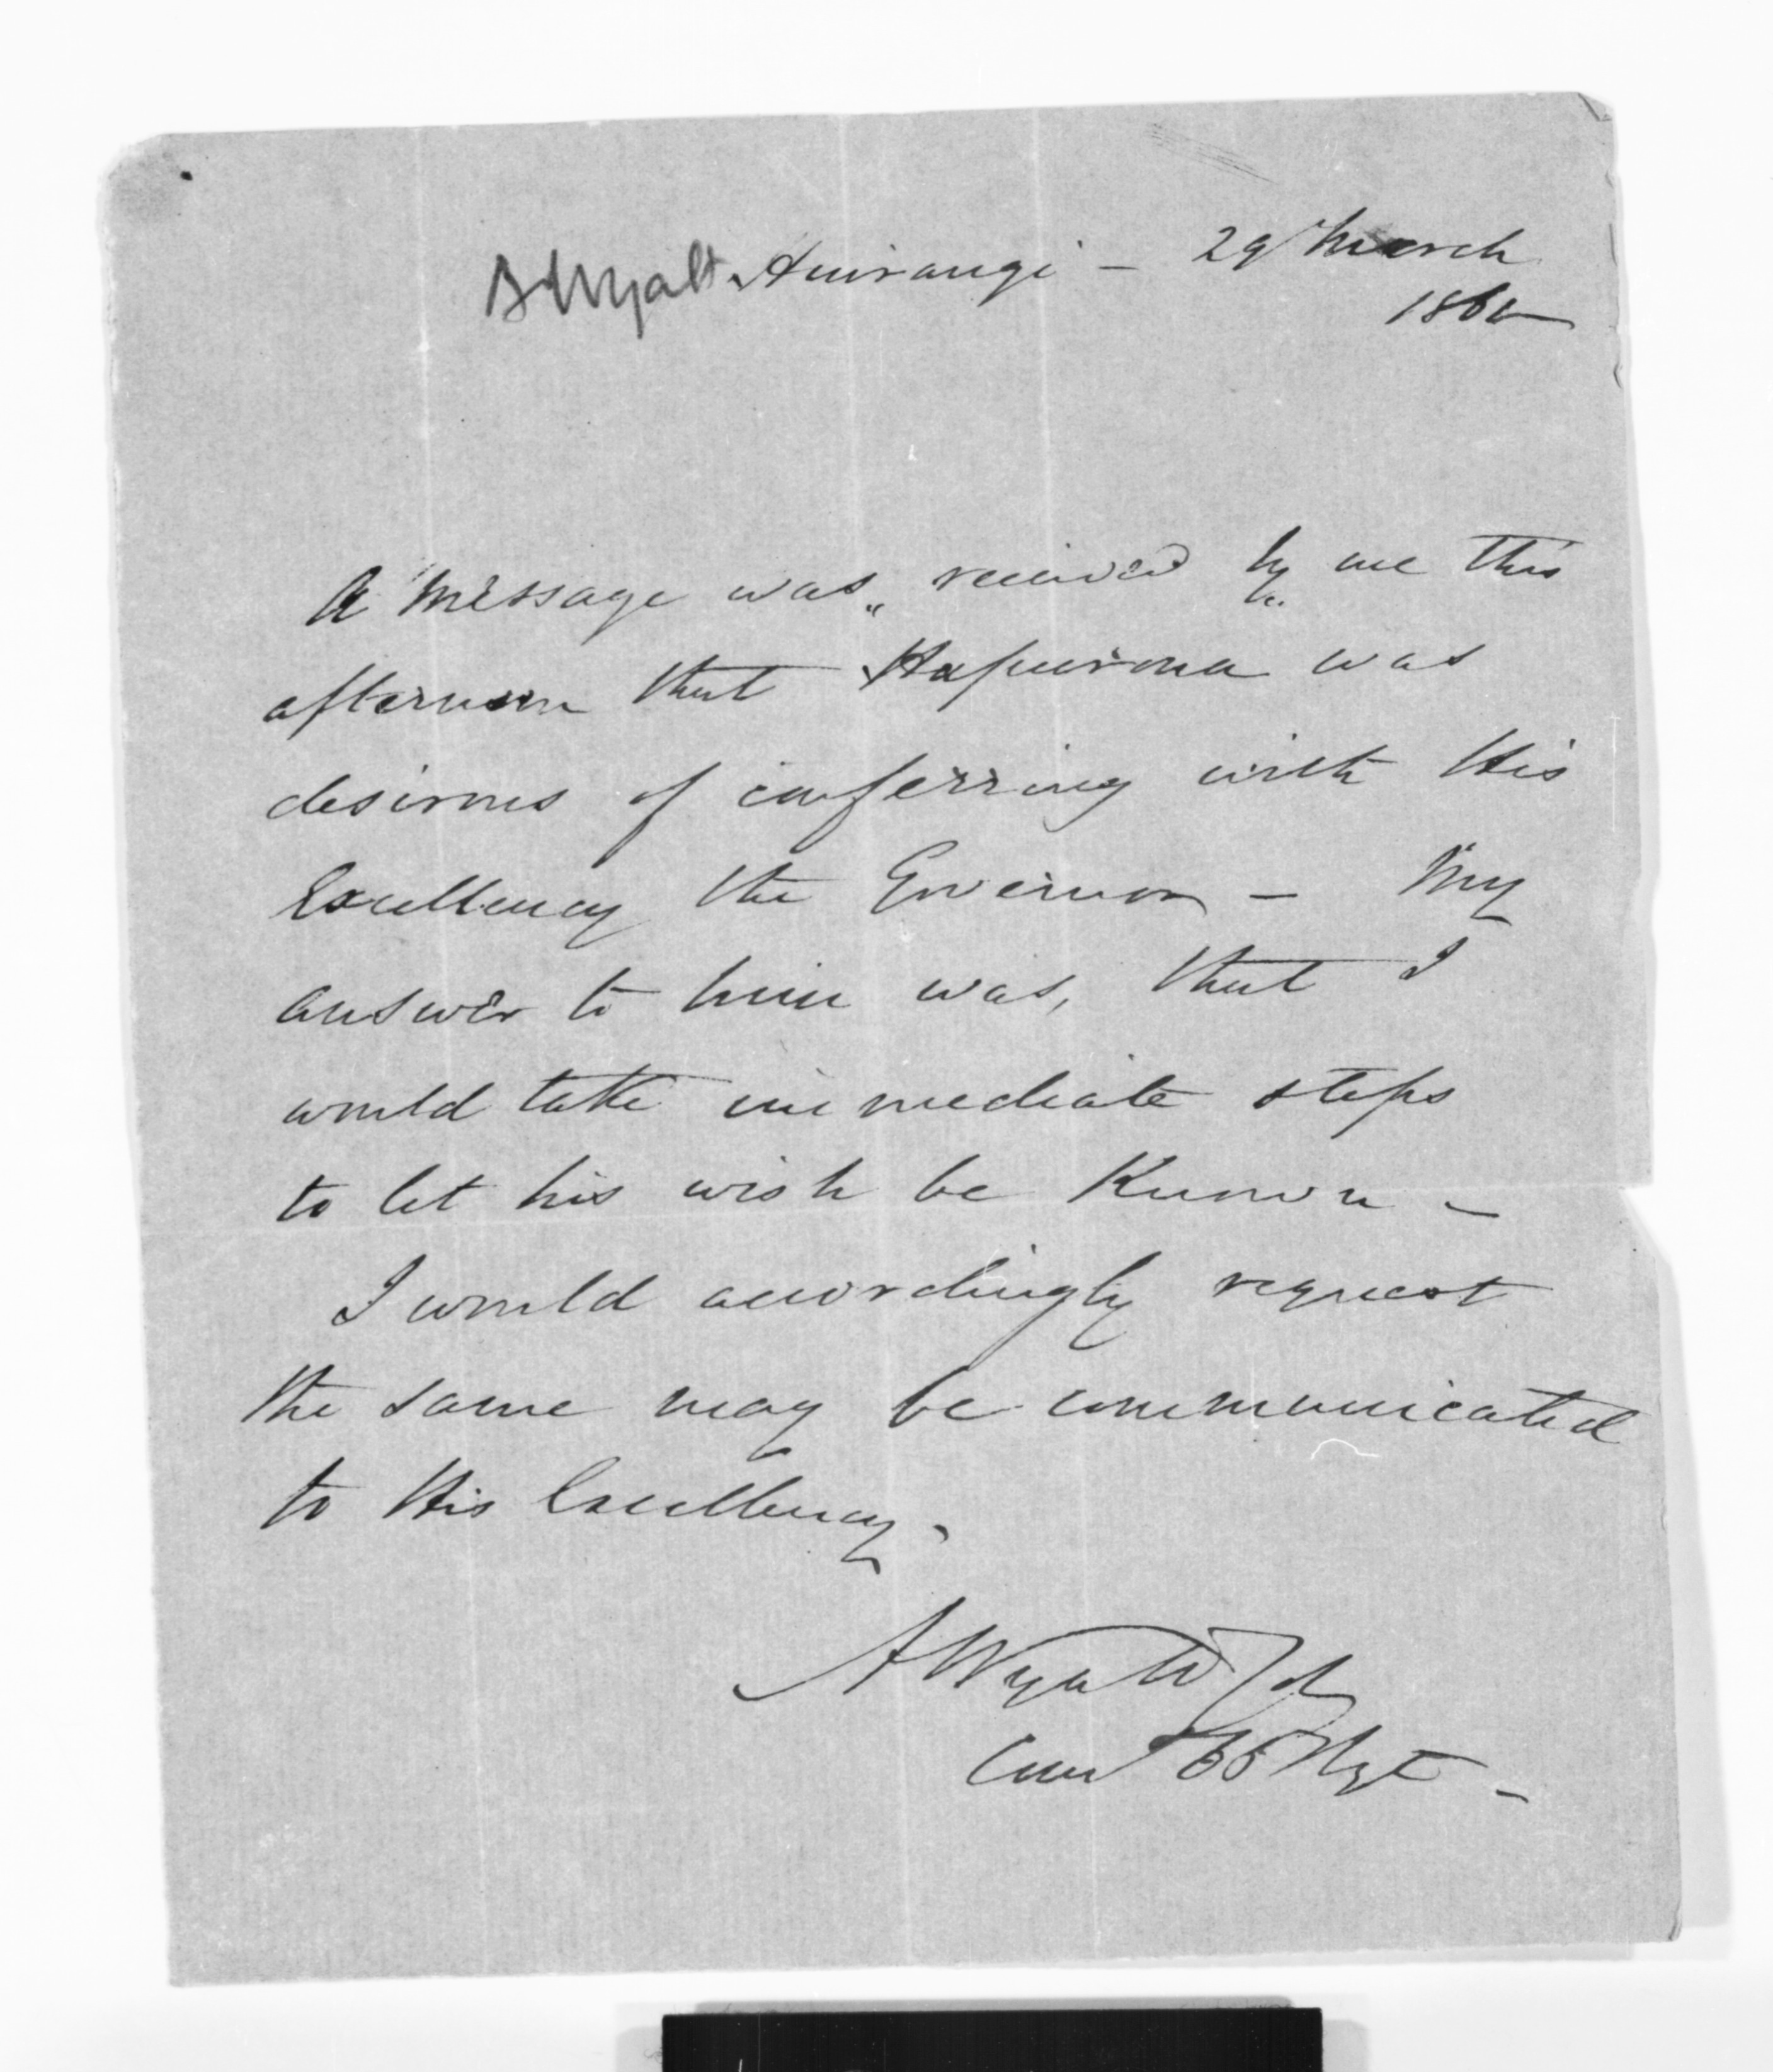 A Wyatt Huirangi - 29 March
186
A Message was received by me this
afternoon that Hapurona was
desirous of conferring with His
Excellency the Governor - My
answer to him was, that I
would take immediate steps
to let his wish be Known -
I would accordingly request
the same may be communicated
to His Excellency.
A Wyatt
65 Regt -